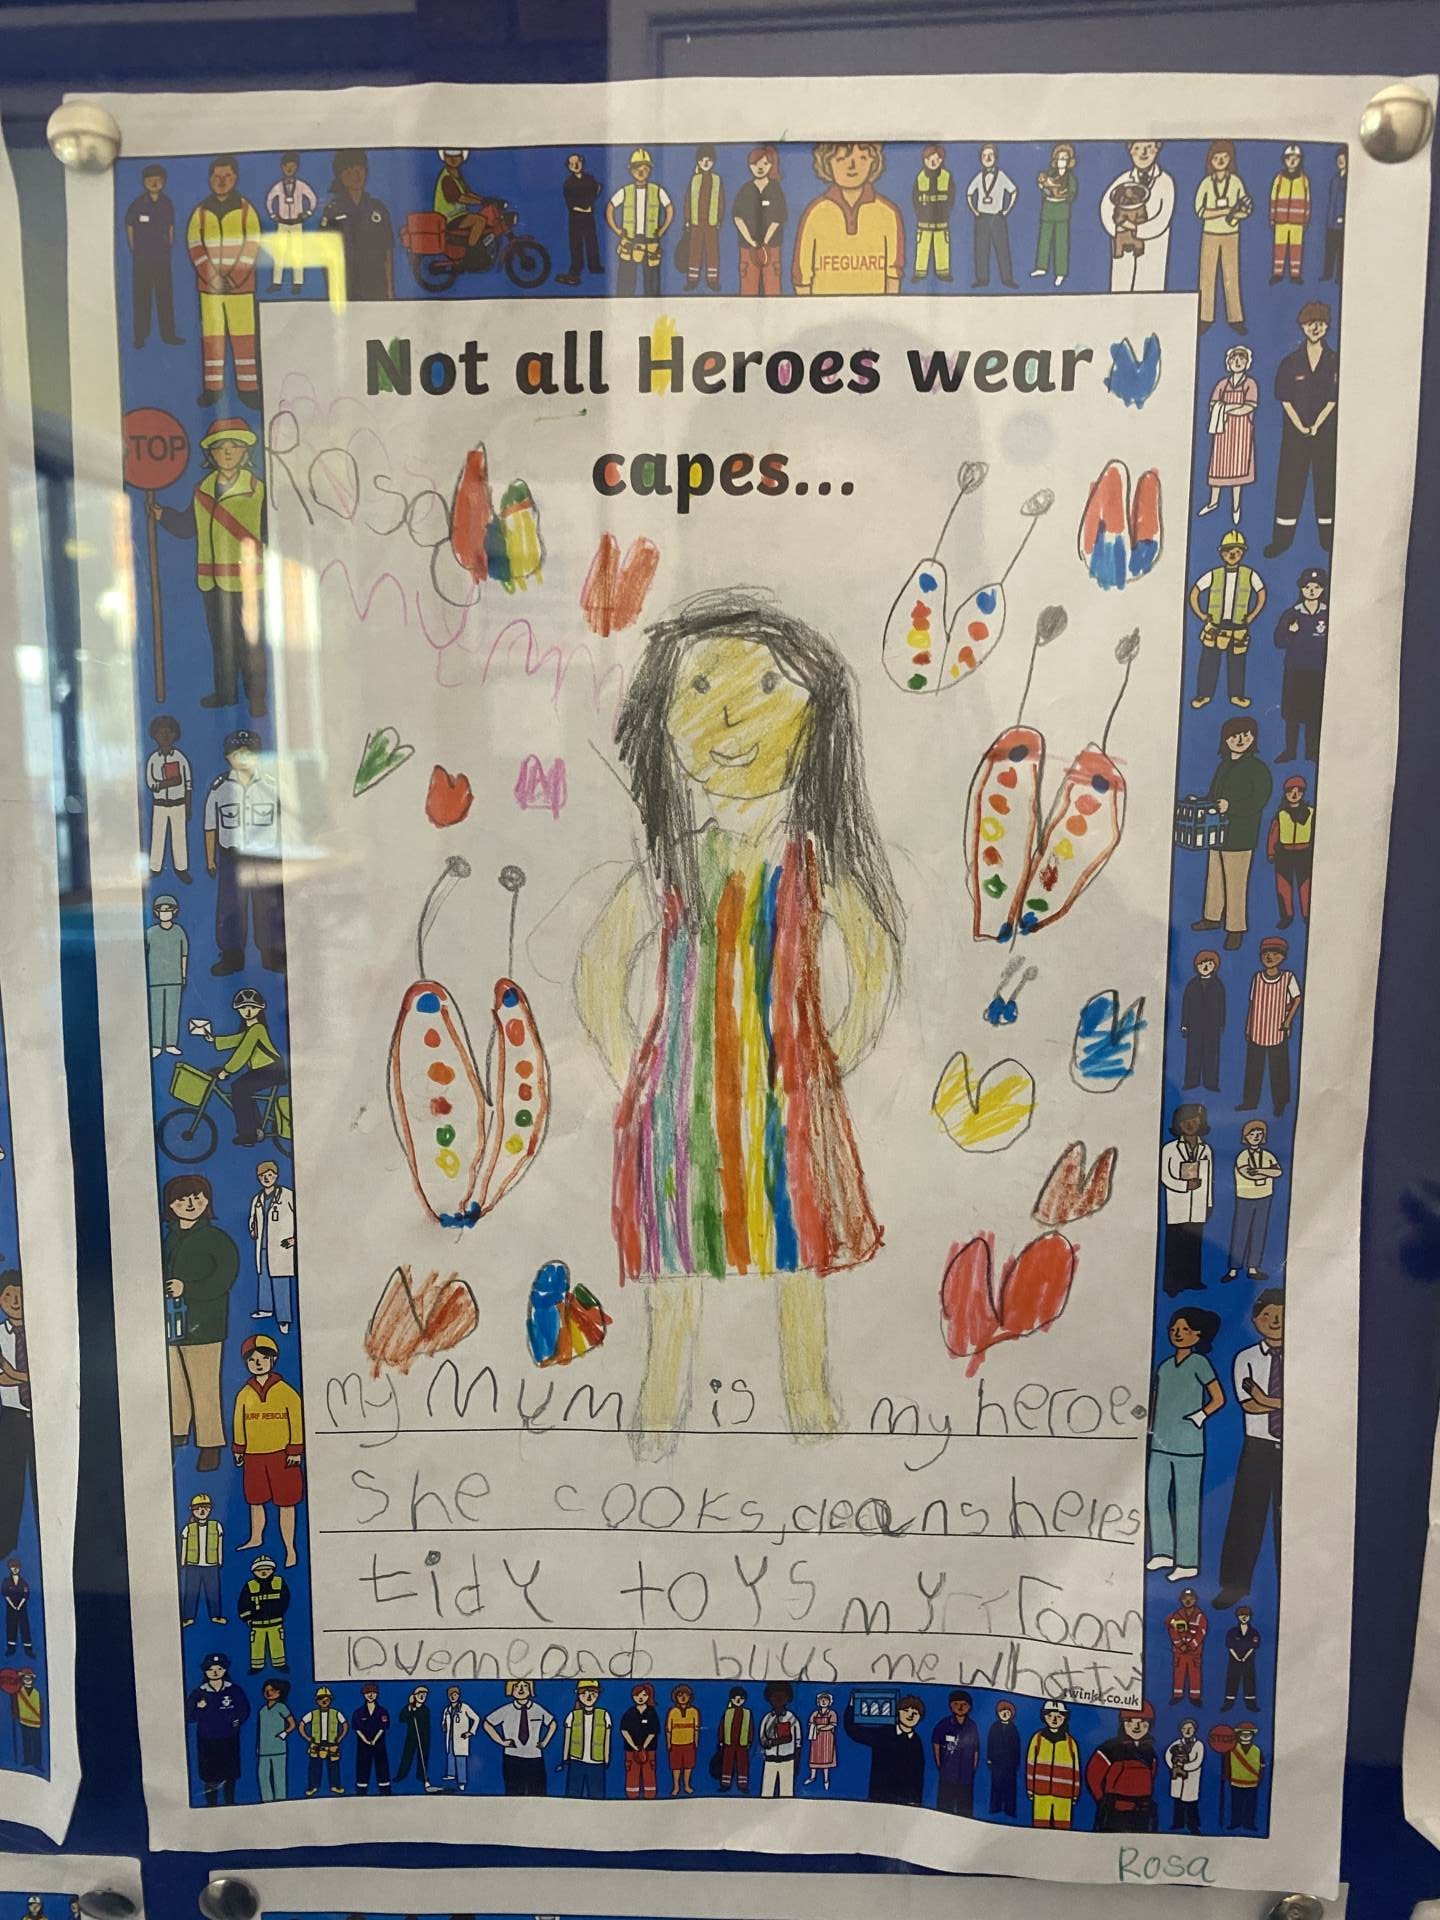 Not all Heroes wear
capes...
Rosa
my mum
LIFEGUARD
TOP
SURF RESCUE
my Mum is my heroe.
She cooks, cleans helps
tidy toys my room
loveme and buys me what
twinkl.co.uk
STOP
Rosa